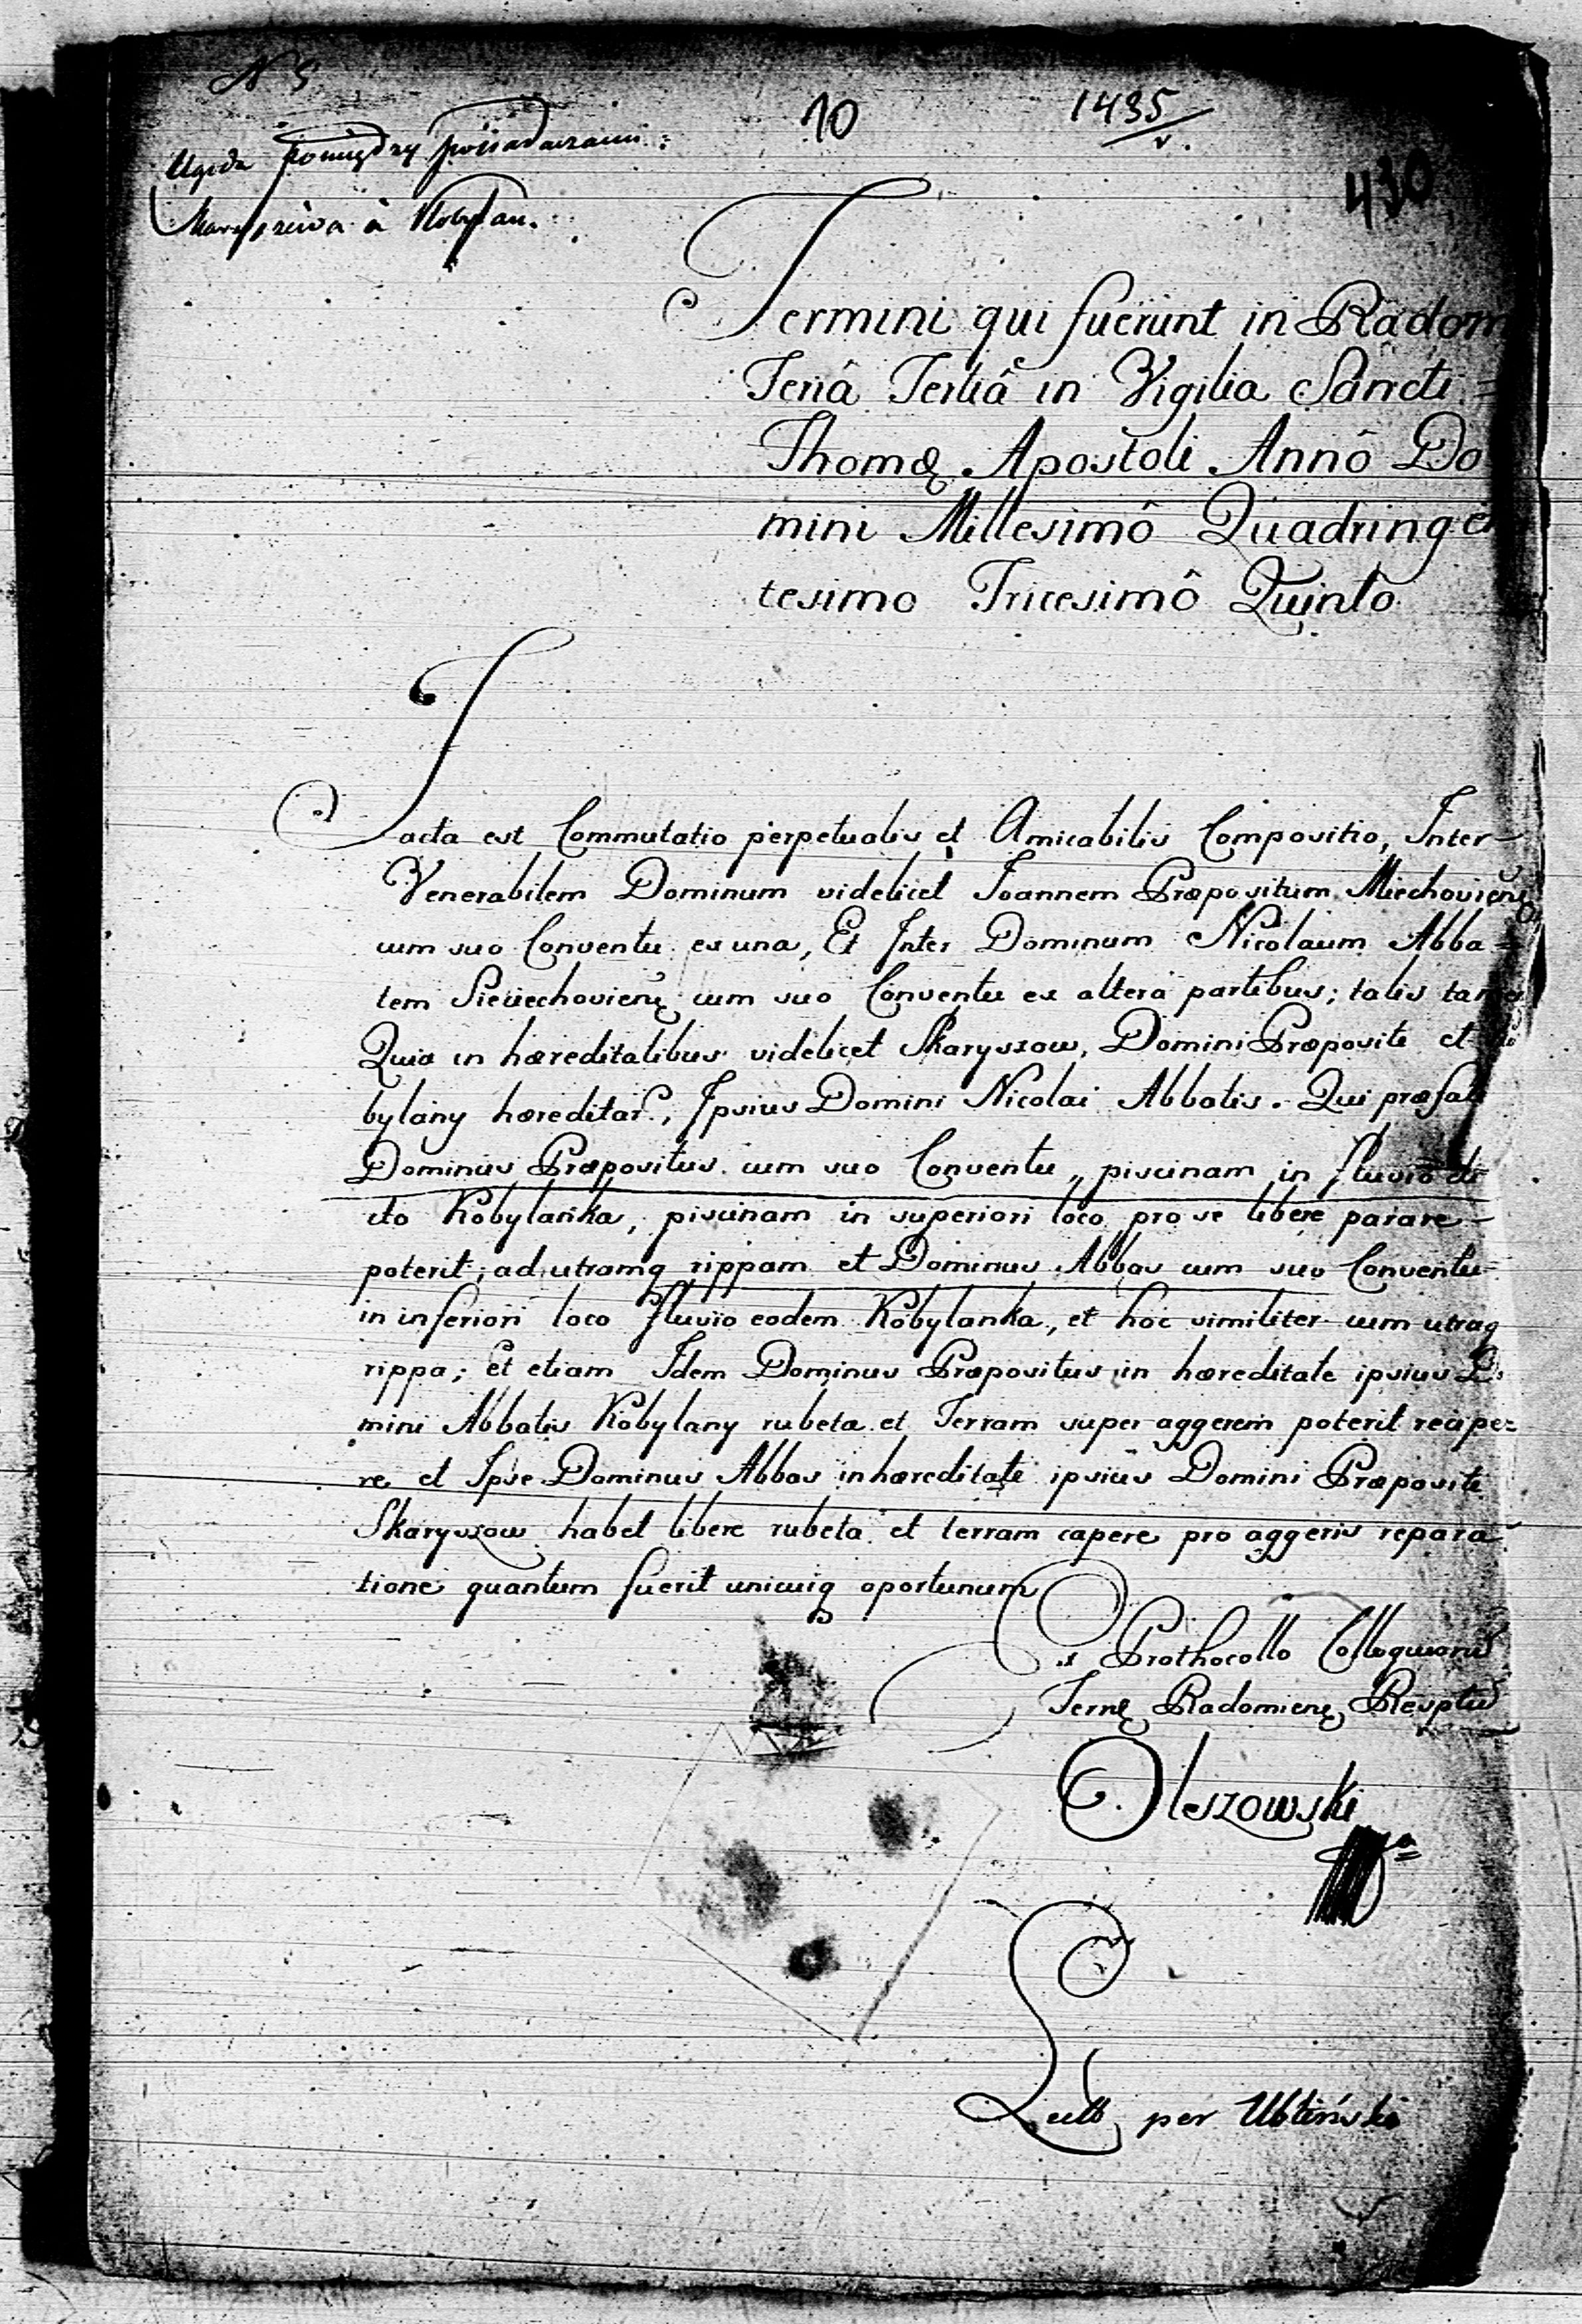 N 5
10
1435
v.
430
Ugoda pomiędzy
Skaryszewa à Kobylan.
Termini qui fuerunt in Radom
Feriâ Tertiâ in Vigilia Sancti =
Thomæ Apostoli Annô Do
mini Millesimô Quadringen
tesimo Tricesimô Quinto
Facta est Commutatio perpetualis et Amicabilis Compositio, Inter
Venerabilem Dominum videlicet Joannem Præpositum Miechovienę
cum suo Conventu ex una, Et Inter Dominum Nicolaum Abba =
tem Sieciechovienę cum suo Conventu ex altera partibus; talis
Quia in hæreditatibus videlicet Skaryszow, Domini Præpositi et
bylany hæreditař, Ipsius Domini Nicolai Abbatis. Qui præfat
Dominus Præpositus cum suo Conventu, piscinam in fluvio di
cto Kobylanka, piscinam in superiori loco pro se libere parare
poterit, ad utramq rippam et Dominus Abbas cum suo Conventu
in inferiori loco fluvio eodem Kobylanka, et hoc similiter cum utraq
rippa; Et etiam Idem Dominus Præpositus in hæreditate ipsius Do
mini Abbatis Kobylany rubeta et Terram super aggerem poterit recipe=
re et Ipse Dominus Abbas in hæreditate ipsius Domini Præpositi
Skaryszow habet libere rubeta et terram capere pro aggeris repara
tione quantum fuerit unicuiq oportunum
Ex Prothocollo Colloquiorũ
Terræ Radomienę
Oleszowski
Lectt per